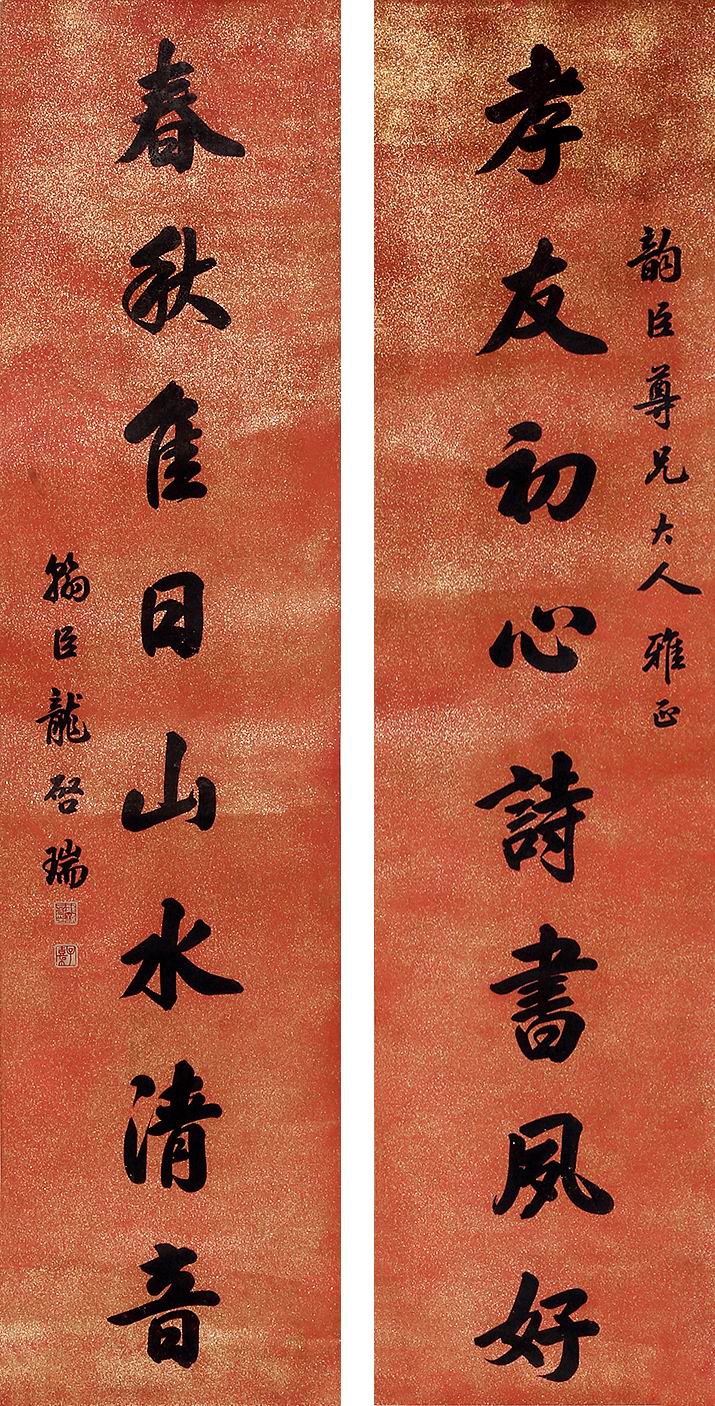 韵臣尊兄大人雅正
孝友初心詩書夙好
春秋佳日山水清音
翰臣龍啓瑞